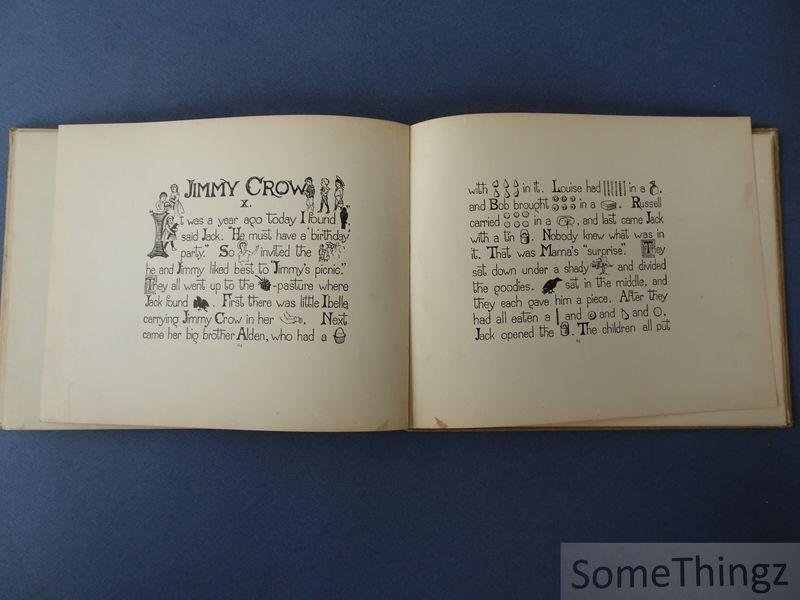 JIMMY CROW
X.
It was a year ago today I found
said Jack. "He must have a birthday
party." So invited the
he and Jimmy liked best to Jimmy's picnic."
They all went up to the -pasture where
Jack found . First there was little Ibelle
carrying Jimmy Crow in her . Next
came her big brother Alden, who had a
with in it. Louise had in a ,
and Bob brought in a . Russell
carried in a , and last came Jack
with a tin . Nobody knew what was in
it. That was Mama's "surprise". They
sat down under a shady and divided
the goodies. sat in the middle, and
they each gave him a piece. After they
had all eaten a and and and ,
Jack opened the . The children all put
SomeThingz